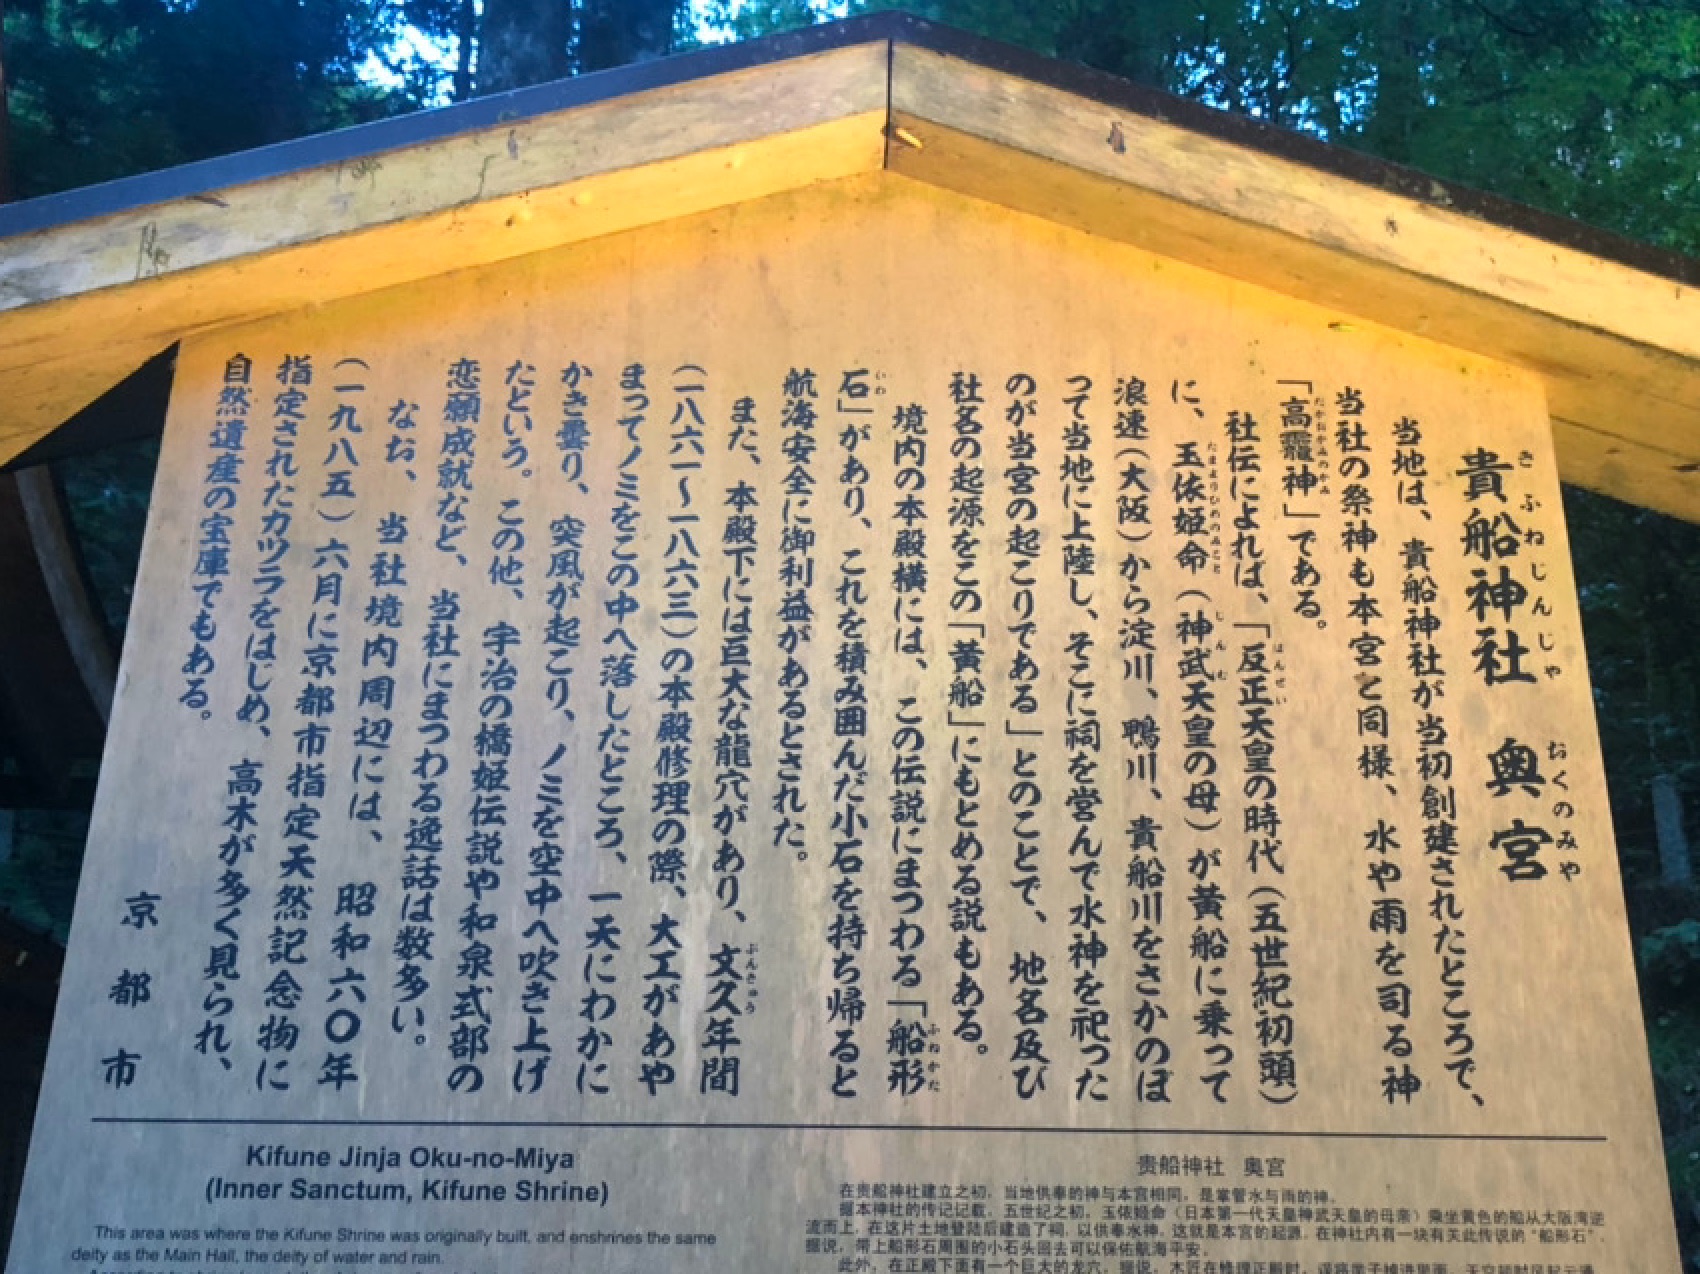 貴船神社 奥宮
きふねじんじゃ おくのみや
当地は、貴船神社が当初創建されたところで、
当社の祭神も本宮と同様、水や雨を司る神
「高龗神」である。
たかおかみのかみ
社伝によれば、「反正天皇の時代(五世紀初頭)
はんぜい
に、玉依姫命(神武天皇の母)が黄船に乗って
たまよりひめのみこと しんむ
浪速(大阪)から淀川、鴨川、貴船川をさかのぼ
って当地に上陸し、そこに祠を営んで水神を祀った
のが当宮の起こりである」とのことで、地名及び
社名の起源をこの「黄船」にもとめる説もある。
境内の本殿横には、この伝説にまつわる「船形
ふねかた
石」があり、これを積み囲んだ小石を持ち帰ると
いわ
航海安全に御利益があるとされた。
また、本殿下には巨大な龍穴があり、文久年間
ぶんきゅう
(一八六一〜一八六三)の本殿修理の際、大工があや
まってノミをこの中へ落したところ、一天にわかに
かき曇り、突風が起こり、ノミを空中へ吹き上げ
たという。この他、宇治の橋姫伝説や和泉式部の
恋願成就など、当社にまつわる逸話は数多い。
なお、当社境内周辺には、昭和六〇年
(一九八五)六月に京都市指定天然記念物に
指定されたカツラをはじめ、高木が多く見られ、
自然遺産の宝庫でもある。
京都市
Kifune Jinja Oku-no-Miya
(Inner Sanctum, Kifune Shrine)
This area was where the Kifune Shrine was originally built, and enshrines the same
deity as the Main Hall, the deity of water and rain.
贵船神社 奥宫
在贵船神社建立之初，当地供奉的神与本宫相同，是掌管水与雨的神。
据本神社的传记记载，五世纪之初，玉依姬命（日本第一代天皇神武天皇的母亲）乘坐黄色的船从大阪湾逆
流而上，在这片土地登陆后建造了祠，以供奉水神，这就是本宫的起源。在神社内有一块有关此传说的“船形石”，
据说，带上船形石周围的小石头回去可以保佑航海平安。
此外，在正殿下面有一个巨大的龙穴，据说，木匠在修理正殿时，